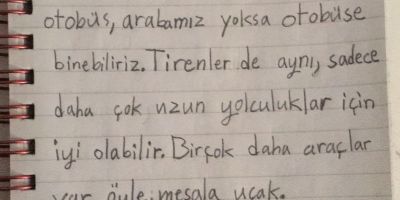 otobüs, arabamız yoksa otobüse
binebiliriz. Tirenler de aynı, sadece
daha çok uzun yolculuklar için
iyi olabilir. Birçok daha araçlar
var öyle; mesala uçak.